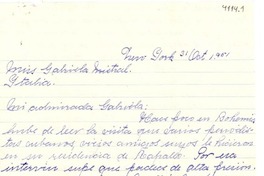 4114.1
New York 31/Oct 1,951
Miss Gabriela Mistral.
Italia.
Mi admirada Gabriela:
Hace poco en Bohemia
hube de leer la visita que varios periodis-
tas cubanos viejos amigos suyos le hicieron
en su residencia de Rapallo. Por esa
interview supe que padece de alta presión.